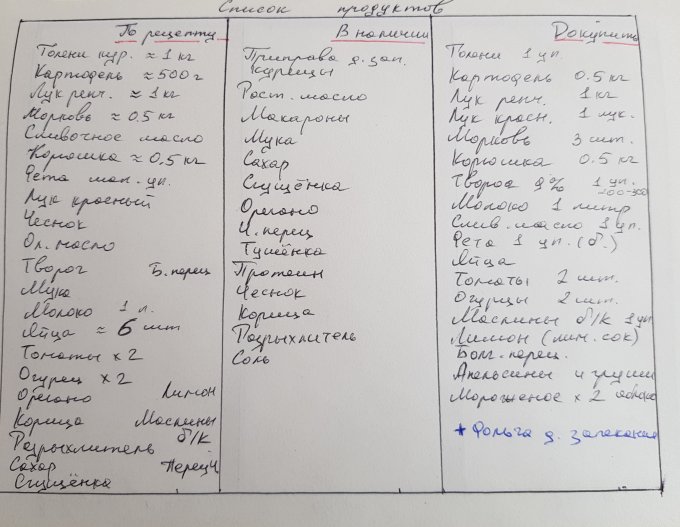 Список продуктов
По рецепту
Голени кур. ≈ 1 кг
Картофель ≈ 500 г
Лук репч. ≈ 1 кг
Морковь ≈ 0,5 кг
Сливочное масло
Корюшка ≈ 0,5 кг
Фета мал. уп.
Лук красный
Чеснок
Ол. масло
Творог Б. перец
Мука
Молоко 1 л.
Яйца ≈ 6 шт
Томаты х 2
Огурец х 2
Орегано Лимон
Корица Маслины
б/к
Разрыхлитель
Сахар Перец Ч
Сгущёнка
В наличии
Приправа д. зап.
курицы
Раст. масло
Макароны
Мука
Сахар
Сгущёнка
Орегано
Ч. перец
Тушёнка
Протеин
Чеснок
Корица
Разрыхлитель
Соль
Докупить
Голени 1 уп.
Картофель 0.5 кг
Лук репч. 1 кг
Лук красн. 1 лук.
Морковь 3 шт.
Корюшка 0.5 кг
Творог 9% 1 уп.
Молоко 1 литр
Слив. масло 1 уп.
Фета 1 уп. (б.)
Яйца
Томаты 2 шт.
Огурцы 2 шт.
Маслины б/к 1 уп
Лимон (лим. сок)
Болг. перец.
Апельсины и груши
Мороженое х 2 яблоко
+ Фольга д. запекания